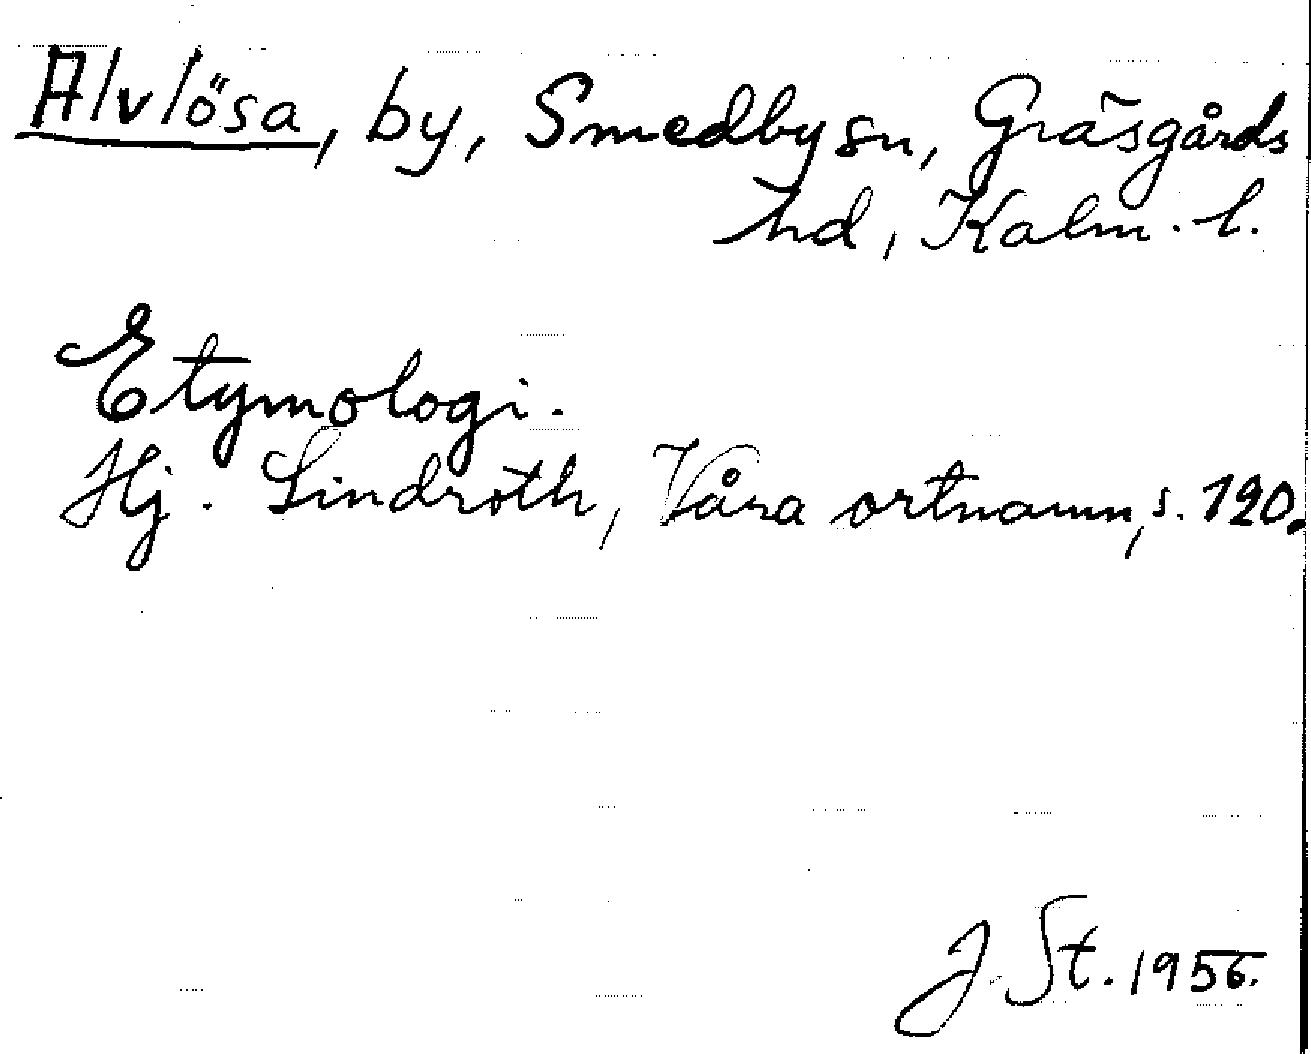 Alvlösa, by, Smedby sn, Gräsgårds
hd, Kalm. l.
Etymologi.
Hj. Lindroth, Våra ortnamn, s. 120.
J. St. 1956.